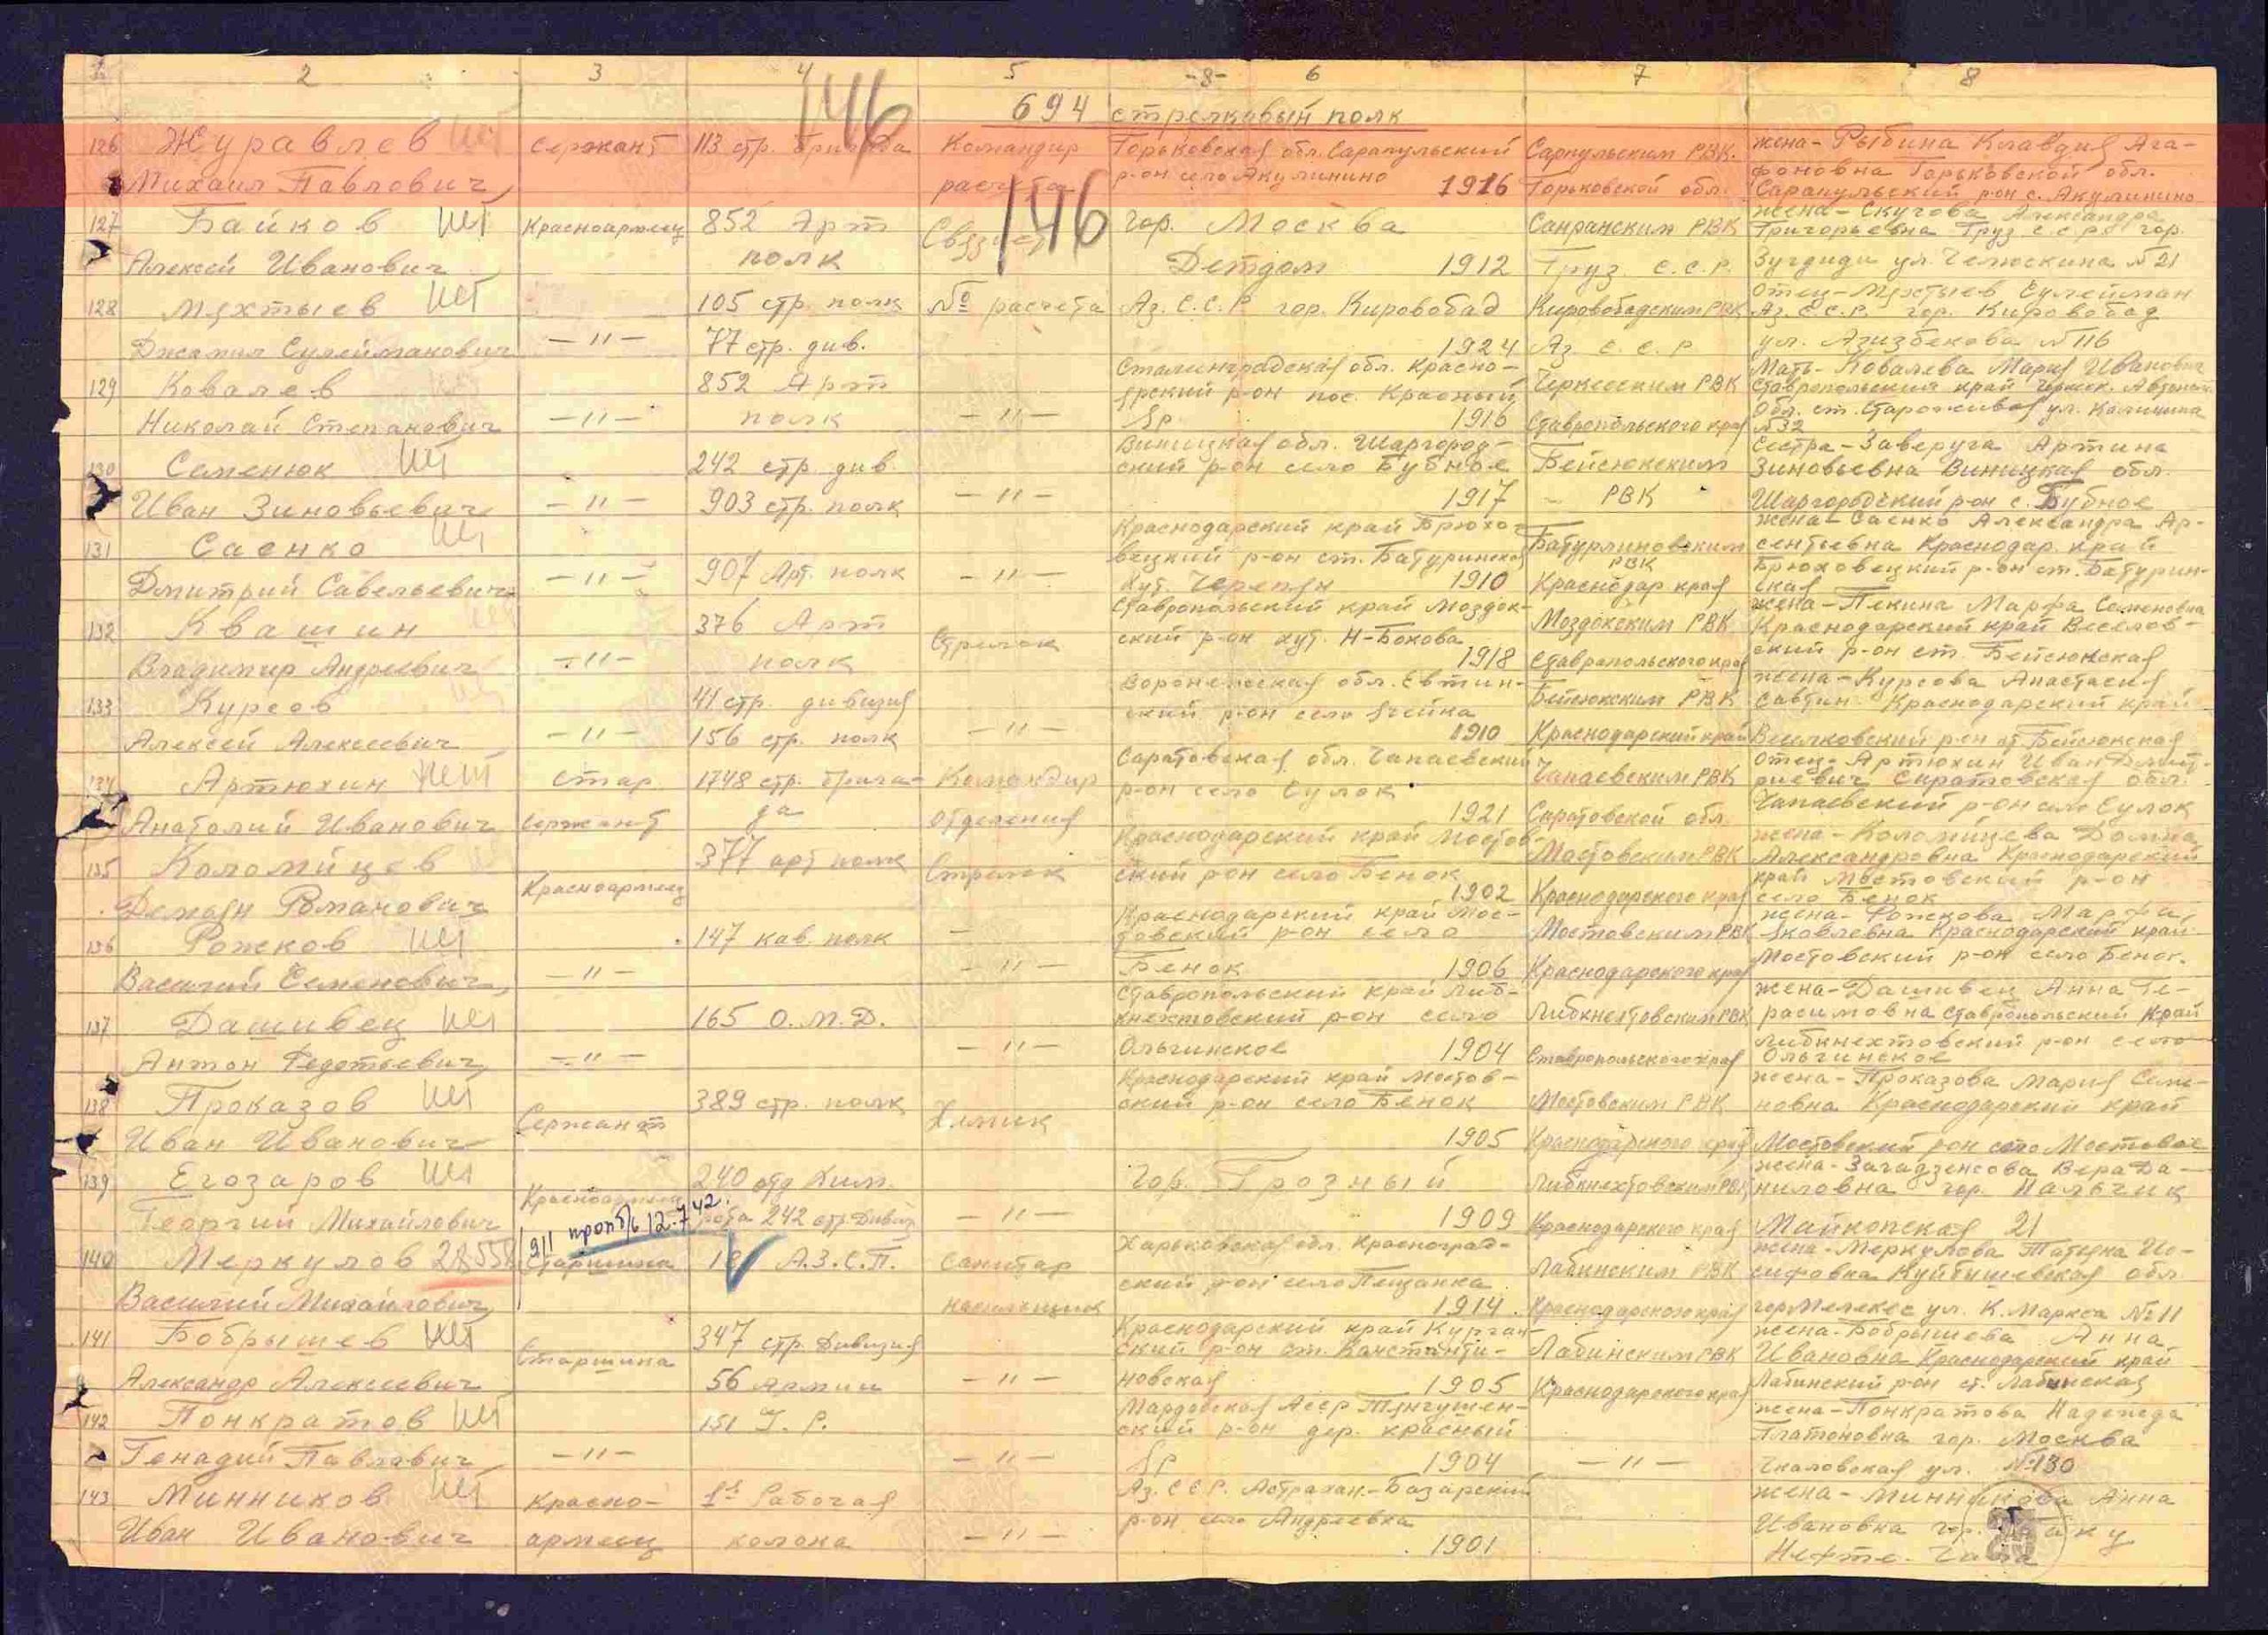 1 2 3 4 5 -8- 6 7 8
146
694 стрелковый полк
126 Журавлев нет сержант 113 стр. бригада Командир Горьковская обл. Сарапульский Сарпульским РВК. жена - Рыбина Клавдия Ага-
Михаил Павлович расчета р-он село Акулинино 1916 Горьковской обл. фоновна Горьковской обл.
Сарапульский р-он с. Акулинино
146
127 Байков нет Красноармеец 852 Арт Связист гор. Москва РВК жена - Скугова Александра
Алексей Иванович полк Детдом 1912 Груз. С.С.Р. Григорьевна Груз С.С.Р. гор.
Зугдиди ул. Челюскина №21
128 Мехтыев нет 105 стр. полк № расчета Аз. С.С.Р гор. Кировобад Кировобадским РВК отец - Мехтыев Сулейман
Джамил Сулейманович - " - 77 стр. див. 1924 Аз С.С.Р Аз. С.С.Р. гор. Кировобад
ул. Азизбекова №116
129 Ковалев 852 Арт Сталинградская обл. Красно- Черкесским РВК Мать - Ковалева Мария Ивановна
Николай Степанович - " - полк - " - ярский р-он пос. Красный Ставропольского края Ставропольский край Черкес. Автоном.
Яр 1916 Обл. ст. Сторожевая ул. Калинина
№32
130 Семенюк нет 242 стр. див. Виницкая обл. Шаргород- Бейсюкским сестра - Заверуга Артина
Иван Зиновьевич - " - 903 стр. полк - " - ский р-он село Бубное РВК Зиновьевна Виницкая обл.
1917 Шаргородский р-он с. Бубное
131 Саенко нет 907 Арт. полк Краснодарский край Брюхо- Батурлиновским жена - Саенко Александра Ар-
Дмитрий Савельевич - " - - " - вецкий р-он ст. Батуринская РВК сентьевна Краснодар. край
хут. Черепян 1910 Краснодар края Брюховецкий р-он ст. Батурин-
ская
132 Квашин нет 376 Арт Стрелок Ставропольский край Моздок- Моздокским РВК жена - Пекина Марфа Семеновна
Владимир Андреевич - " - полк ский р-он хут. Н-Бокова Ставропольского края Краснодарский край Веселов-
1918 ский р-он ст. Бейсюкская
133 Курсов нет 41 стр. дивизия Воронежская обл. Евтин- Бейсюкским РВК жена - Курсова Анастасия
Алексей Алексеевич - " - 156 стр. полк - " - ский р-он село Ячейка Краснодарский край Савтин Краснодарский край
1910 р-он ст. Бейсюкская
134 Артюхин нет стар. 1748 стр. брига- Командир Саратовская обл. Чапаевский Чапаевским РВК отец - Артюхин Иван Дмит-
Анатолий Иванович сержант да отделения р-он село Сулок 1921 Саратовской обл. риевич Саратовская обл.
Чапаевский р-он село Сулок
135 Коломийцев нет Красноармеец 377 арт полк Стрелок Краснодарский край Мостов- Мостовским РВК жена - Коломийцева Домна
Демьян Романович ский р-он село Бенок 1902 Краснодарского края Александровна Краснодарский
край Мостовский р-он
село Бенок
136 Рожков нет 147 кав. полк Краснодарский край Мос- Мостовским РВК жена - Рожкова Марфа
Василий Семенович - " - - " - товский р-он село Краснодарского края Яковлевна Краснодарский край
Бенок 1906 Мостовский р-он село Бенок.
137 Дашивец нет 165 О.М.Д. Ставропольский край Либ- Либкнехтовским РВК жена - Дашивец Анна Ге-
Антон Федотьевич - " - - " - кнехтовский р-он село Ставропольского края расимовна Ставропольский край
Ольгинское 1904 Либкнехтовский р-он село
Ольгинское
138 Проказов нет Сержант 389 стр. полк Химик Краснодарский край Мостов- Мостовским РВК жена - Проказова Мария Семе-
Иван Иванович ский р-он село Бенок 1905 Краснодарского края новна Краснодарский край
Мостовский р-он село Мостовое
139 Егозаров нет Красноармеец 240 отд Хим. гор. Грозный Либкнехтовским РВК жена - Вера Да-
Георгий Михайлович рота 242 стр. Дивиз - " - 1909 Краснодарского края ниловна гор. Нальчик
Майкопская 21
911 проп б/в 12.7.42.
140 Меркулов 28558 Старшина А.З.С.П. Санитар Харьковская обл. Красноград- Лабинским РВК жена - Меркулова Татьяна Ио-
Василий Михайлович носильщик ский р-он село Пещанка 1914 Краснодарского края сифовна Куйбышевская обл
гор Мелекес ул. К. Маркса №11
141 Бобрышев нет Старшина 347 стр. Дивизия Краснодарский край Курган- Лабинским РВК жена - Бобрышева Анна
Александр Алексеевич 56 Армии - " - ский р-он ст. Константи- Краснодарского края Ивановна Краснодарский край
новская 1905 Лабинский р-он ст. Лабинская
142 Понкратов нет 151 У. Р. Мордовская Асср р-он дер. Красный жена - Понкратова Надежда
Генадий Павлович - " - - " - Яр 1904 - " - Платоновна гор. Москва
Чкаловская ул. №130
143 Минников нет Красно- 1я Рабочая Аз. С С Р. Астрахан.-Базарский жена - Минникова Анна
Иван Иванович армеец колона - " - р-он село Андреевка 1901 Ивановна гор. Баку
Нефте-